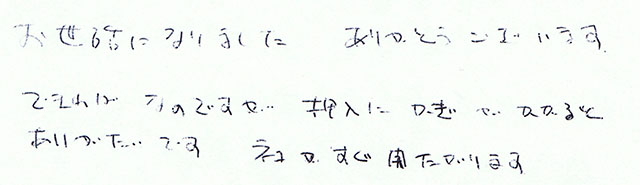 お世話になりました ありがとうございます
できれば なのですが… 押入に かぎ が かかると
ありがたいです ネコが すぐ 開けたがります